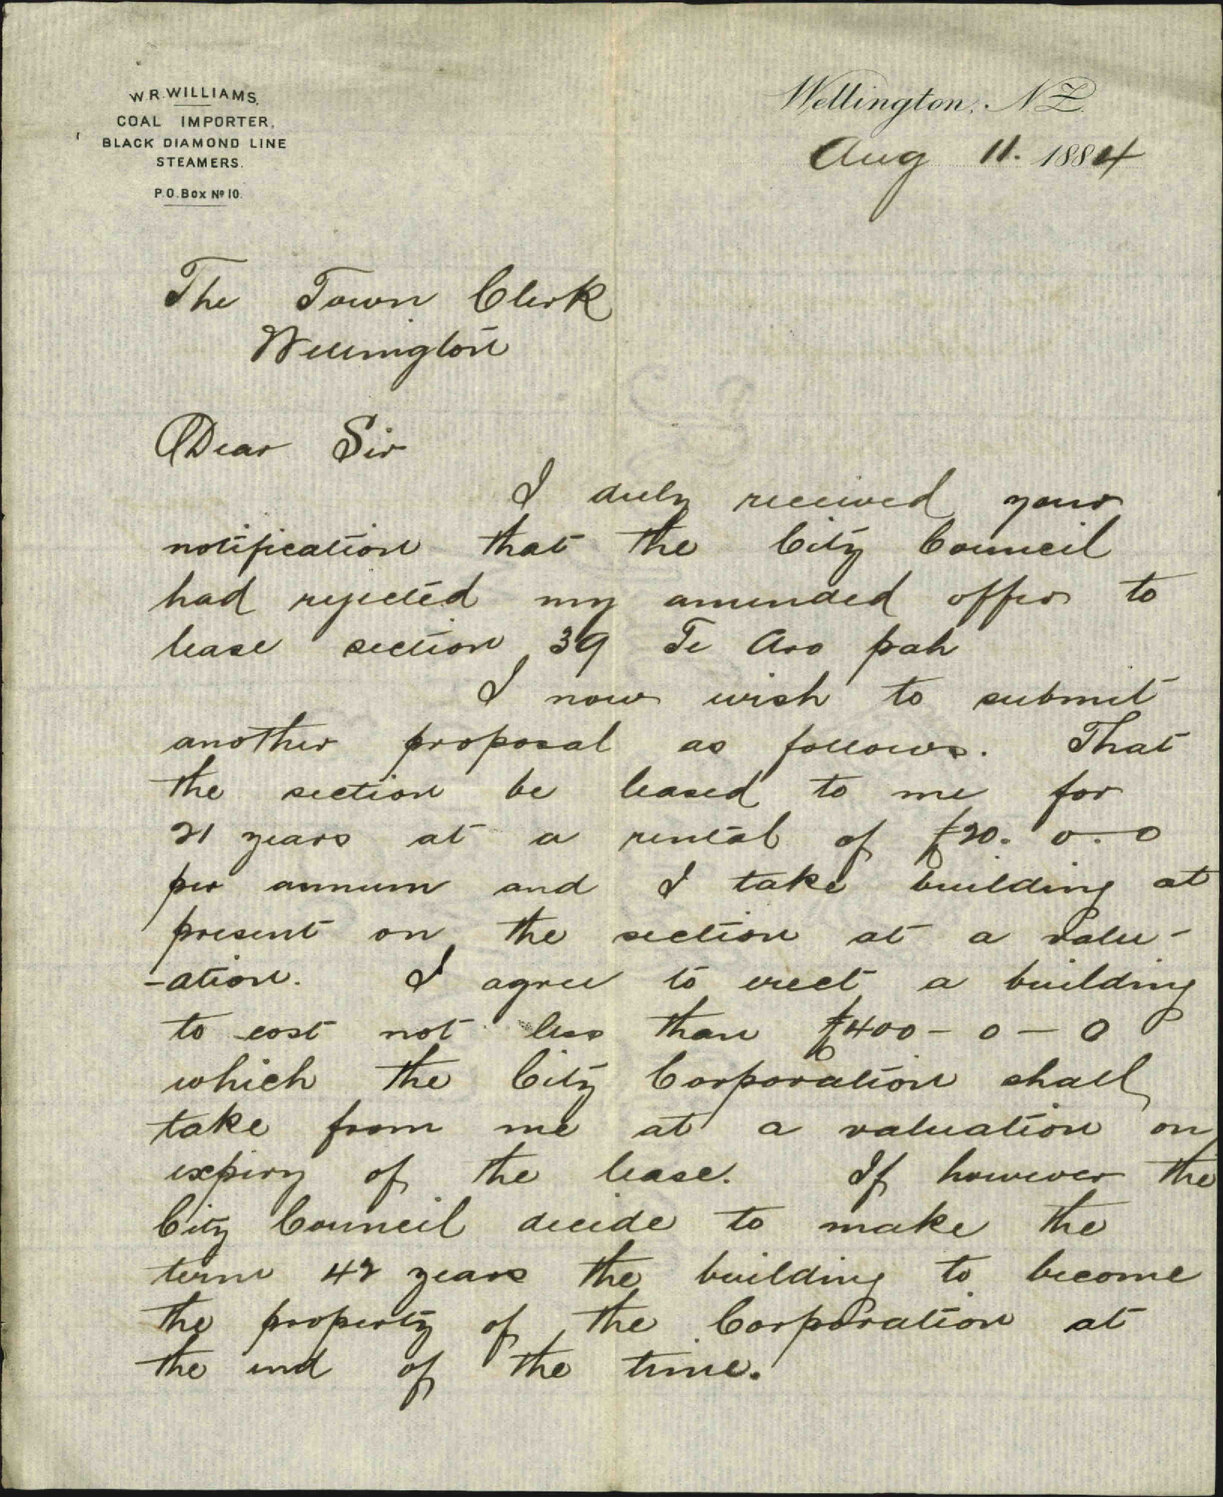 W. R. WILLIAMS,
COAL IMPORTER,
BLACK DIAMOND LINE
STEAMERS.
P.O. Box Nº 10.
Wellington, N Z
Aug 11. 1884
The Town Clerk
Wellington
Dear Sir
I duly received your
notification that the City Council
had rejected my amended offer to
lease section 39 Te Aro pah
I now wish to submit
another proposal as follows. That
the section be leased to me for
21 years at a rental of £20. 0. 0
per annum and I take building at
present on the section at a valu-
-ation. I agree to erect a building
to cost not less than £400 - 0 - 0
which the City Corporation shall
take from me at a valuation on
expiry of the lease. If however the
City Council decide to make the
term 42 years the building to become
the property of the Corporation at
the end of the time.